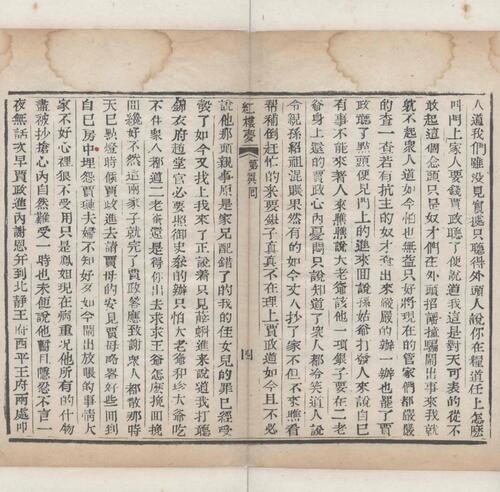 人道我們雖没見實㨿只聽得外頭人說你在糧道任上怎麽
叫門上家人要錢賈政聽了便說道我這是對天可表的從不
敢起這個念頭只是奴才們在外頭招謠撞騙閙出事來我就
躭不起衆人道如今怕也無益只好將現在的管家們都嚴嚴
的查一查若有抗主的奴才查出來嚴嚴的辦一辦也罷了賈
政聽了點頭便見門上的進來回說孫姑爺打發人來說自己
有事不能來著人來瞧瞧說大老爺該他一項銀子要在二老
爺身上還的賈政心內憂悶只說知道了衆人都冷笑道人說
令親孫紹祖混賬果然有的如今丈人抄了家不但不來瞧看
帮補倒赶忙的來要銀子真真不在理上賈政道如今且不必
紅樓夢 第回 四
說他那頭親事原是家兄配錯了的我的侄女兒的罪已經受
彀了如今又找上我來了正說着只見薛蝌進來說道我打聽
錦衣府趙堂官必要照御史叅的辦只怕大老爺和珍大爺吃
不住衆人都道二老爺還是得你出去求求王爺怎麽挽回挽
回纔好不然這兩家子就完了賈政答應致謝衆人都散那時
天已點燈時候賈政進去請賈母的安見賈母畧畧好些回到
自己房中埋怨賈璉夫婦不知好歹如今閙出放賬的事情大
家不好心裡狠不受用只是鳳姐現在病重況他所有的什物
盡被抄搶心內自然難受一時也未便說他暫且隱忍不言一
夜無話次早賈政進內謝恩并到北靜王府西平王府兩處叩